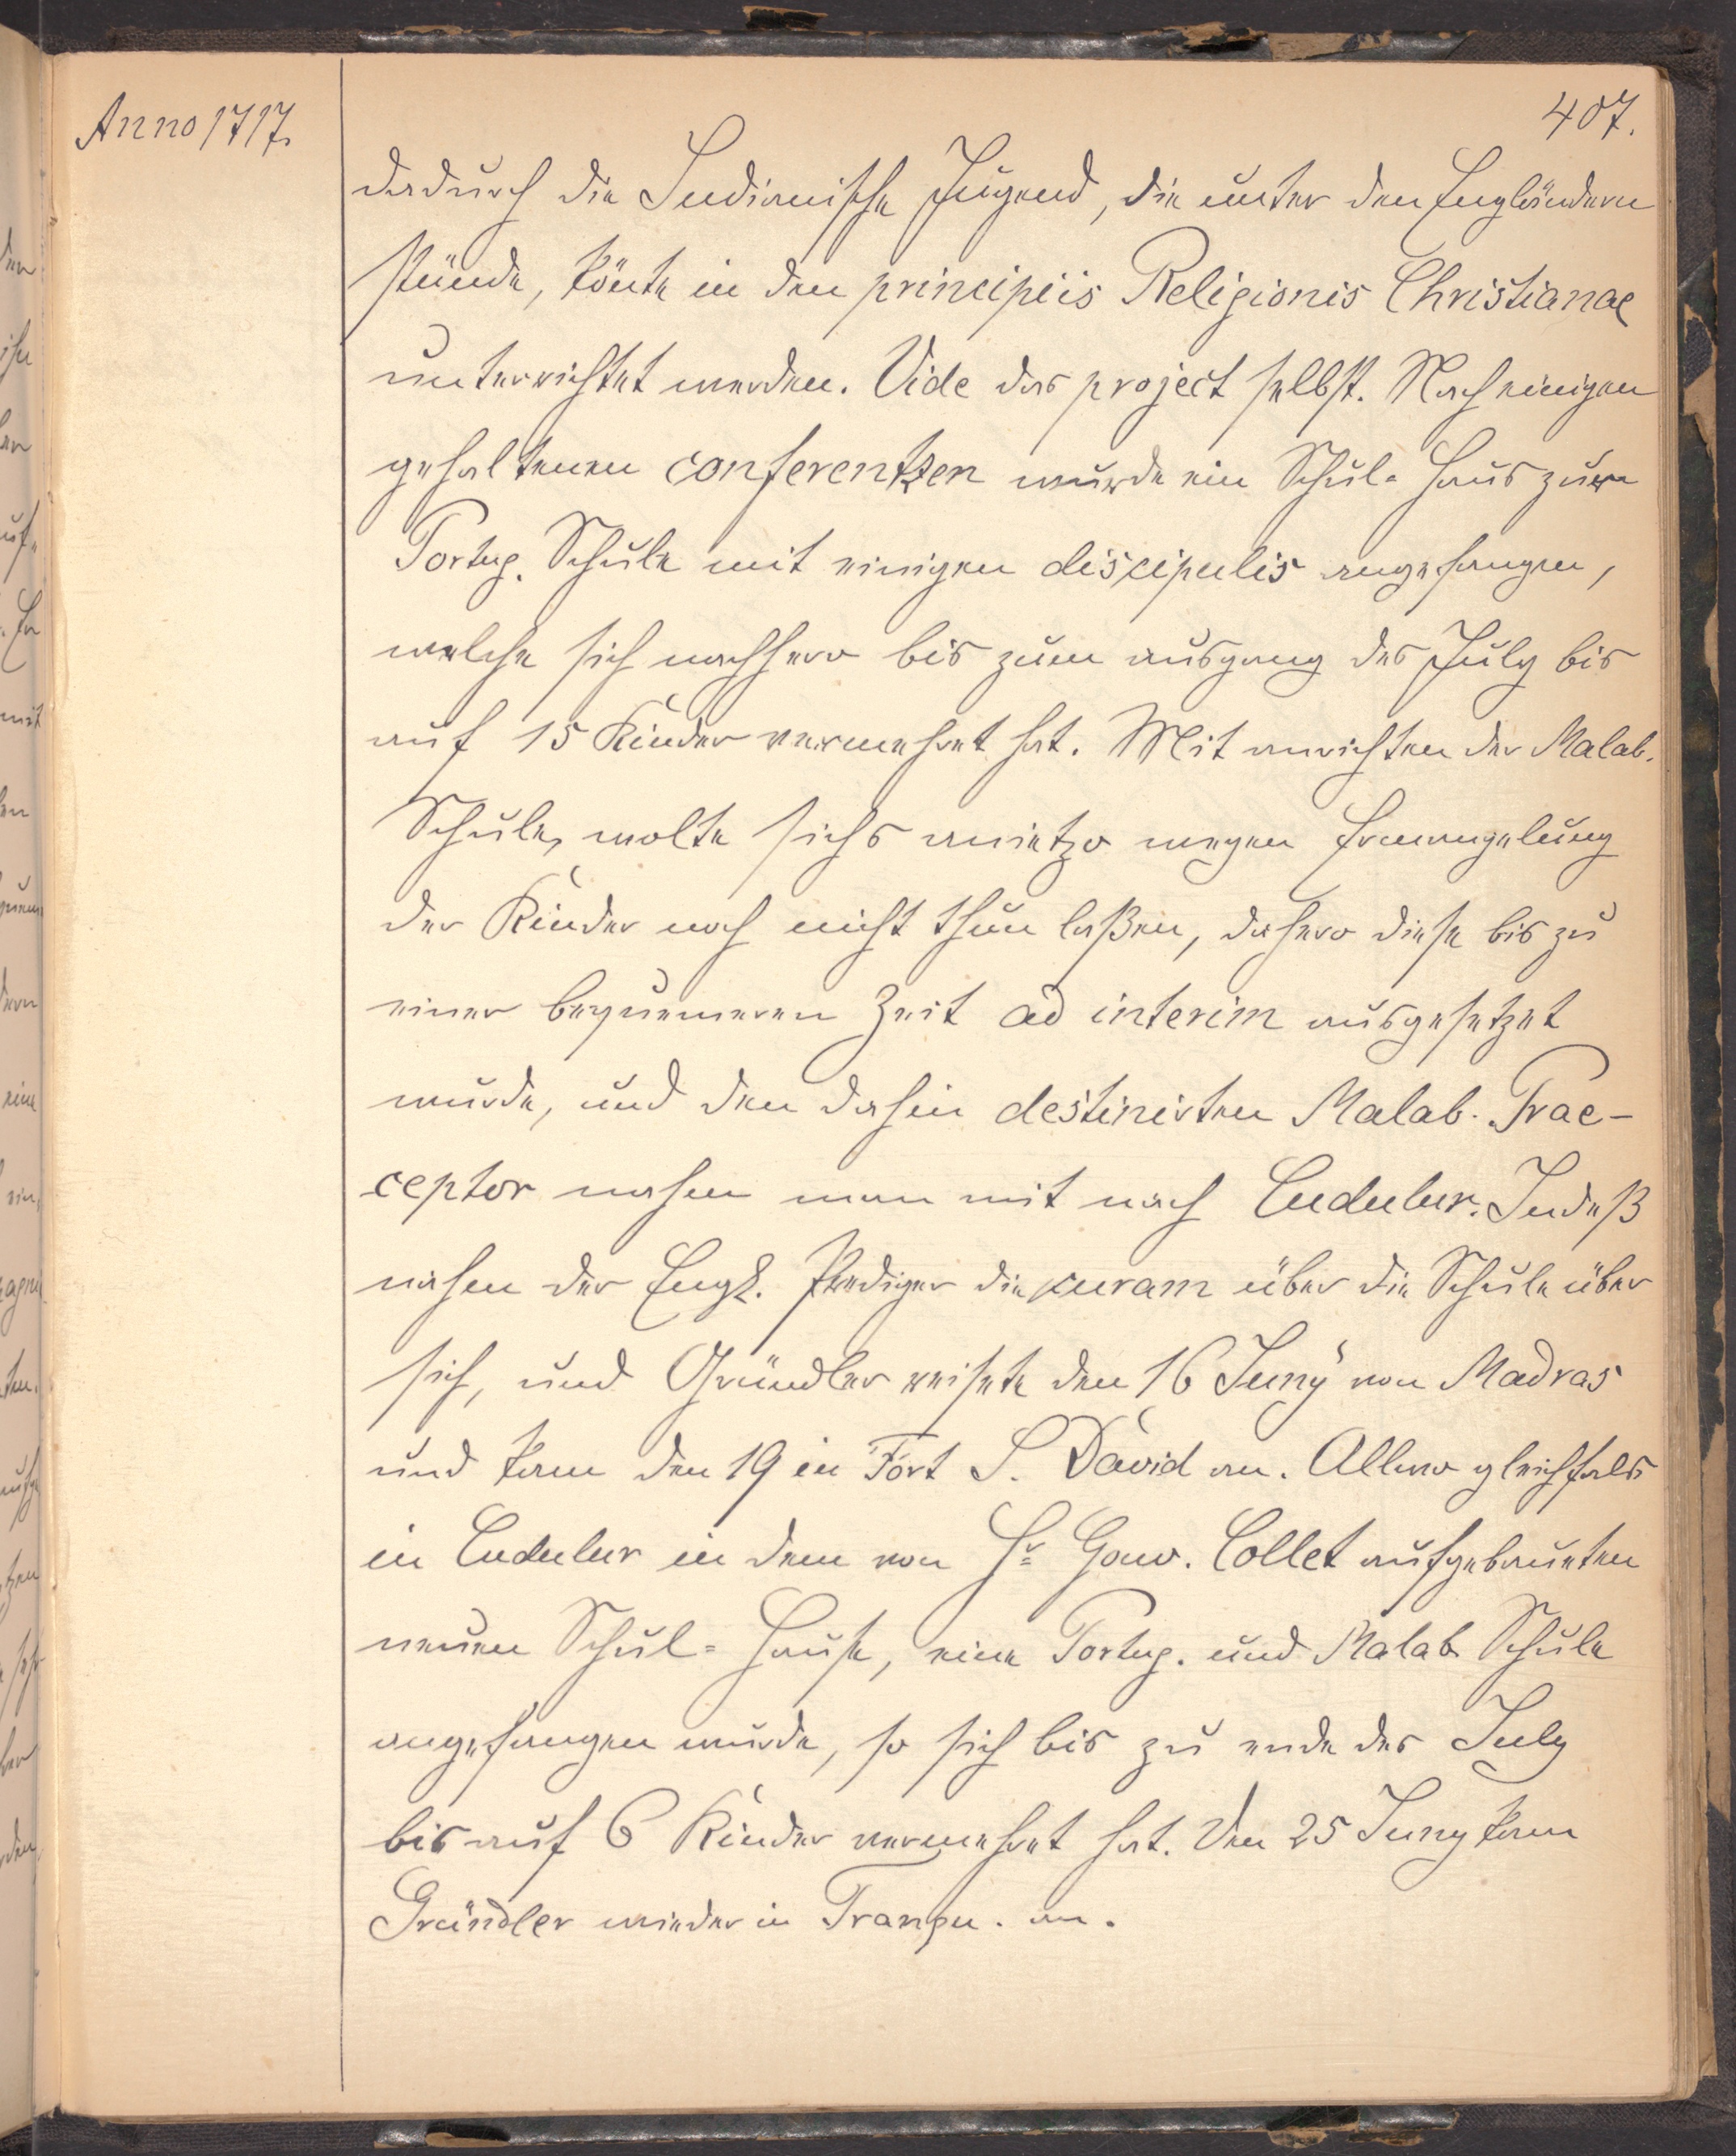 Anno 1717.
407.
dadurch die Indianische Jugend, die unter den Engländern
stünde, könte in den principiis Religionis Christianae
unterrichtet werden. Vide das project selbst. Nach einigen
gehaltenen conferentzen wurde ein Schul-Haus zur
Portug. Schule mit einigen discipulis angefangen,
welche sich nachhero bis zum ausgang des July bis
auf 15 Kinder vermehret hat. Mit anrichten der Malab.
Schule, wolte sichs anietzo wegen Ermangelung
der Kinder noch nicht thun laßen, dahero diese bis zu
einer bequemeren Zeit ad interim ausgesetzet
wurde, und den dahin destinirten Malab. Prae-
ceptor nahm man mit nach Cudulur. Indeß
nahm der Engl. Prediger die curam über die Schule über
sich, und Gründler reisete den 16 Juny von Madras
und kam den 19 in Fort S. David an. Allwo gleichfals
in Cudulur in dem von Hr Gouv. Collet aufgebaueten
neuen Schul-Hause, eine Portug. und Malab. Schule
angefangen wurde, so sich bis zu ende des July
bis auf 6 Kinder vermehret hat. Den 25 Juny kam
Gründler wieder in Tranqu. an.